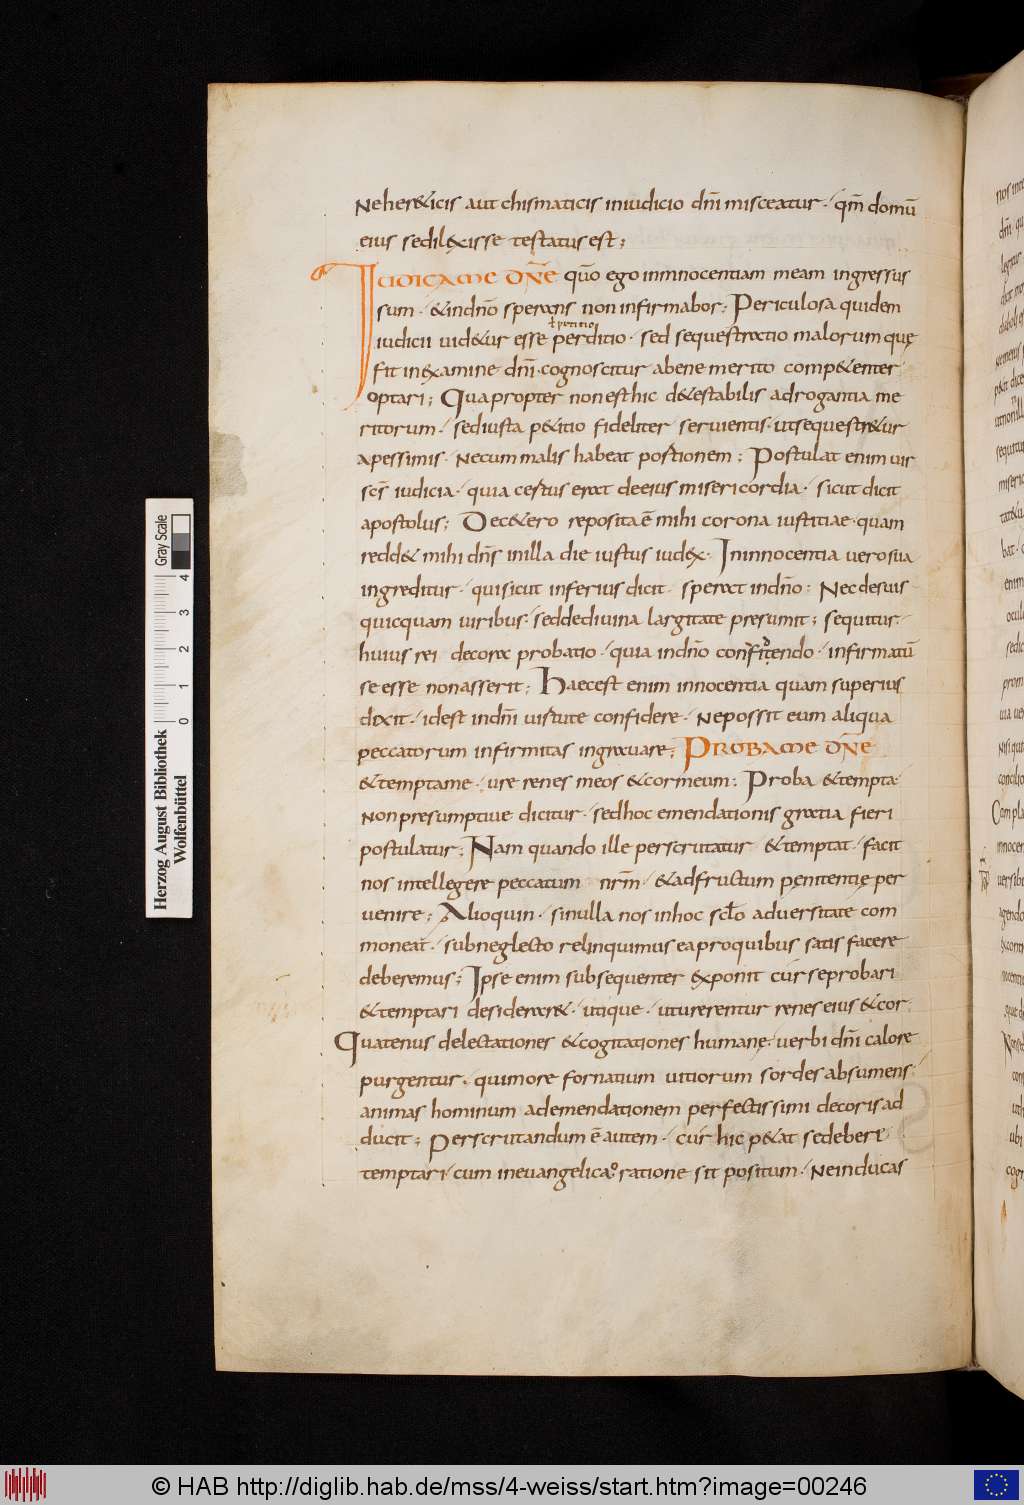 Neher&icis aut chismaticis iniudicio dnī misceatur· qm̄ domū
eius sedilexisse testatus est;
Iudica me dn̄e quō ego ininnocentiam meam ingressus
sum· &indnō sperans non infirmabor; Periculosa quidem
iudicii uid&ur esse perditio· sed sequestratio malorum quę
fit inexamine dnī· cognoscitur abene merito comp&enter
optari; Quapropter non est hic d&estabilis adrogantia me
ritorum· sediusta p&itio fideliter seruientis· utsequestr&ur
apessimis· Necum malis habeat portionem; Postulat enim uir
scs̄ iudicia· quia certus erat deeius misericordia· sicut dicit
apostolus; Dec&ero reposita ē mihi corona iustitiae· quam
redd& mihi dns̄ inilla die iustus iudex· Ininnocentia uero sua
ingreditur· quisicut inferius dicit· sperat indnō; Nec desuis
quicquam uiribus· seddediuina largitate presumit; sequitur
huius rei decora probatio· quia indnō confitendo· infirmatū
se esse nonasserit; Haec est enim innocentia quam superius
dixit· idest indnī uirtute confidere· Nepossit eum aliqua
peccatorum infirmitas ingrauare; Proba me dn̄e
&temptame· ure renes meos &cormeum; Proba &tempta·
Non presumptiue dicitur· sedhoc emendationis gratia fieri
postulatur; Nam quando ille perscrutatur &temptat· facit
nos intellegere peccatum nrm̄· &adfructum pęnitentię per
uenire; Alioquin· sinulla nos inhoc sclō aduersitate com
moneat· subneglecto relinquimus eaproquibus satis facere
deberemus; Ipse enim subsequenter exponit cur seprobari
&temptari desiderar&· utique· uturerentur renes eius &cor·
Quatenus delectationes &cogitationes humanę· uerbi dnī calore
purgentur· quimore fornatium uitiorum sordes absumens·
animas hominum ademendationem perfectissimi decoris ad
ducit; Perscrutandum ē autem· cur hic p&at sedeberi
temptari· cum ineuangelica oratione sit positum· Neinducas
Herzog August Bibliothek
Wolfenbüttel
0 1 2 3 4
Gray Scale
© HAB http://diglib.hab.de/mss/4-weiss/start.htm?image=00246